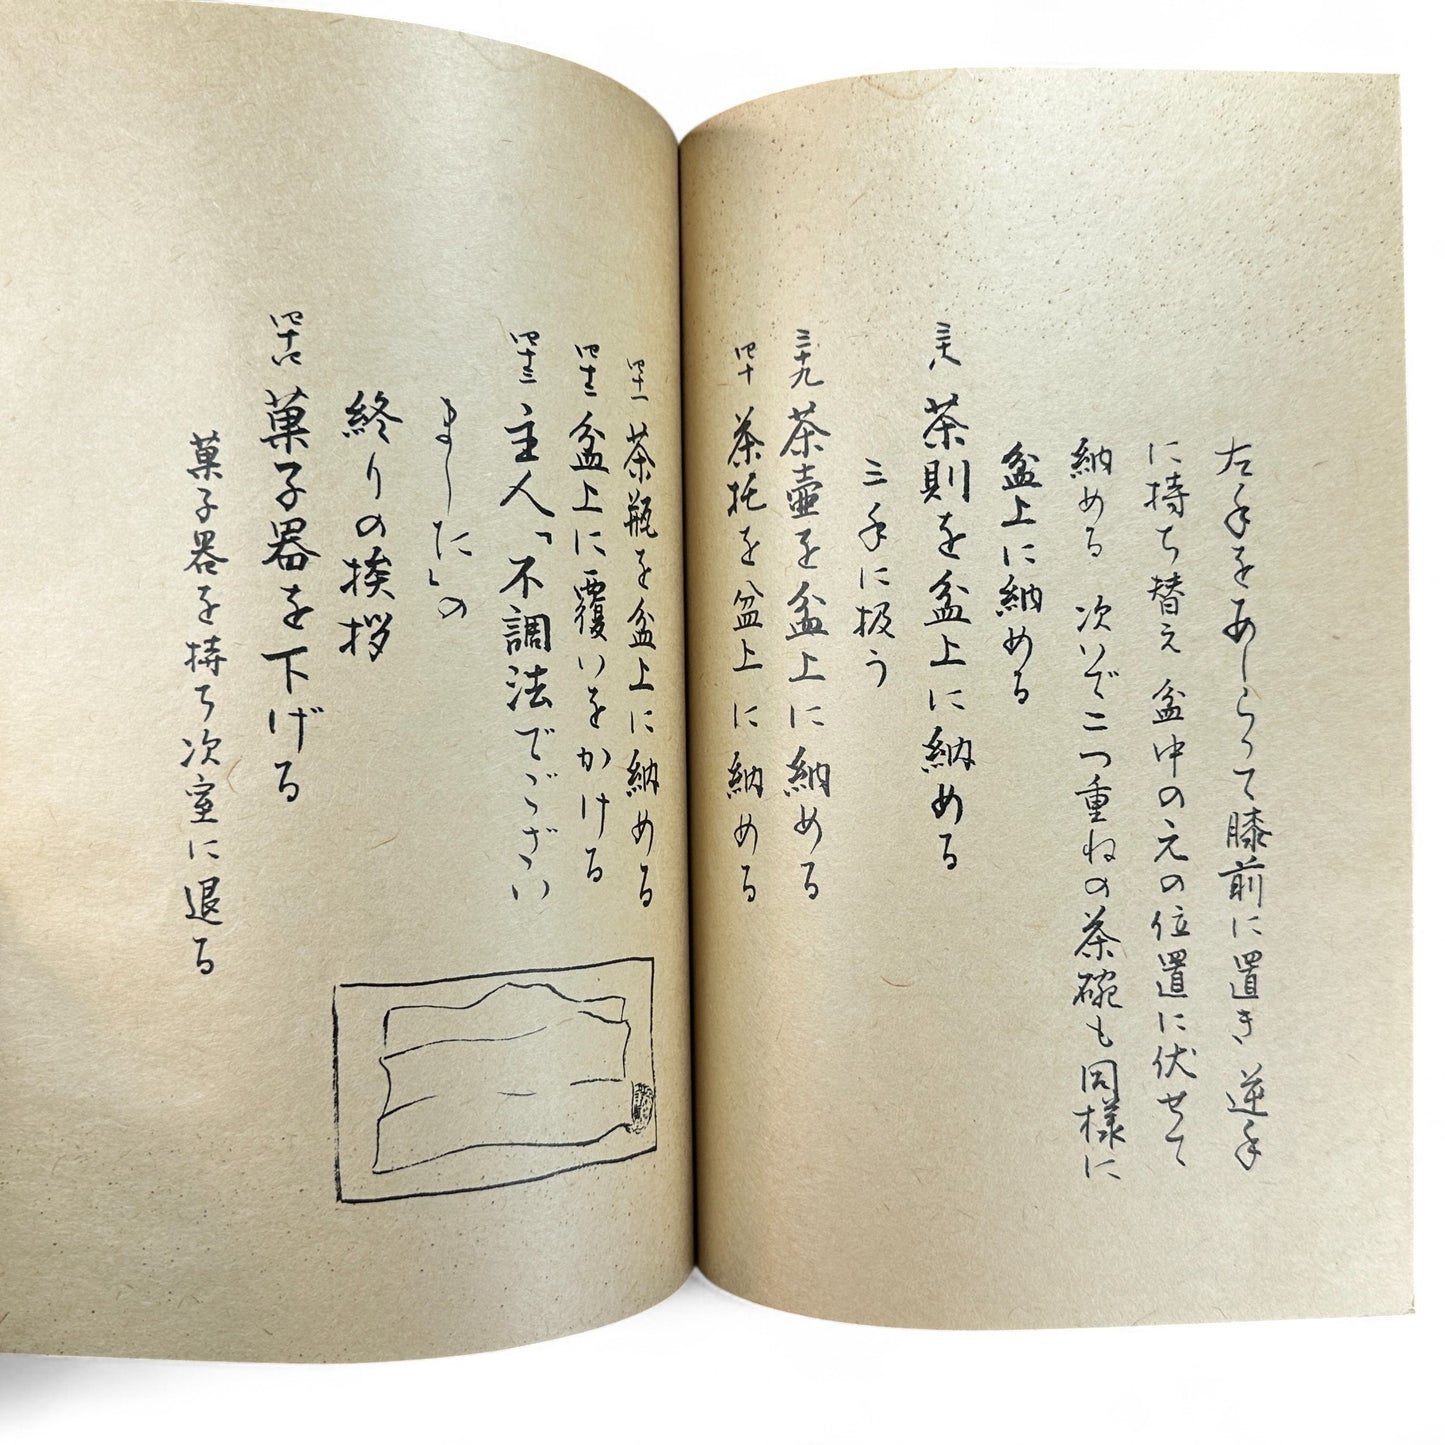 左手をあしらって膝前に置き 逆手
に持ち替え 盆中の元の位置に伏せて
納める 次いで二つ重ねの茶碗も同様に
盆上に納める
三十八 茶則を盆上に納める
三手に扱う
三十九 茶壷を盆上に納める
四十 茶托を盆上に納める
四十一 茶瓶を盆上に納める
四十二 盆上に覆いをかける
四十三 主人「不調法でございい
ました」の
終りの挨拶
菓子器を下げる
菓子器を持ち次室に退る